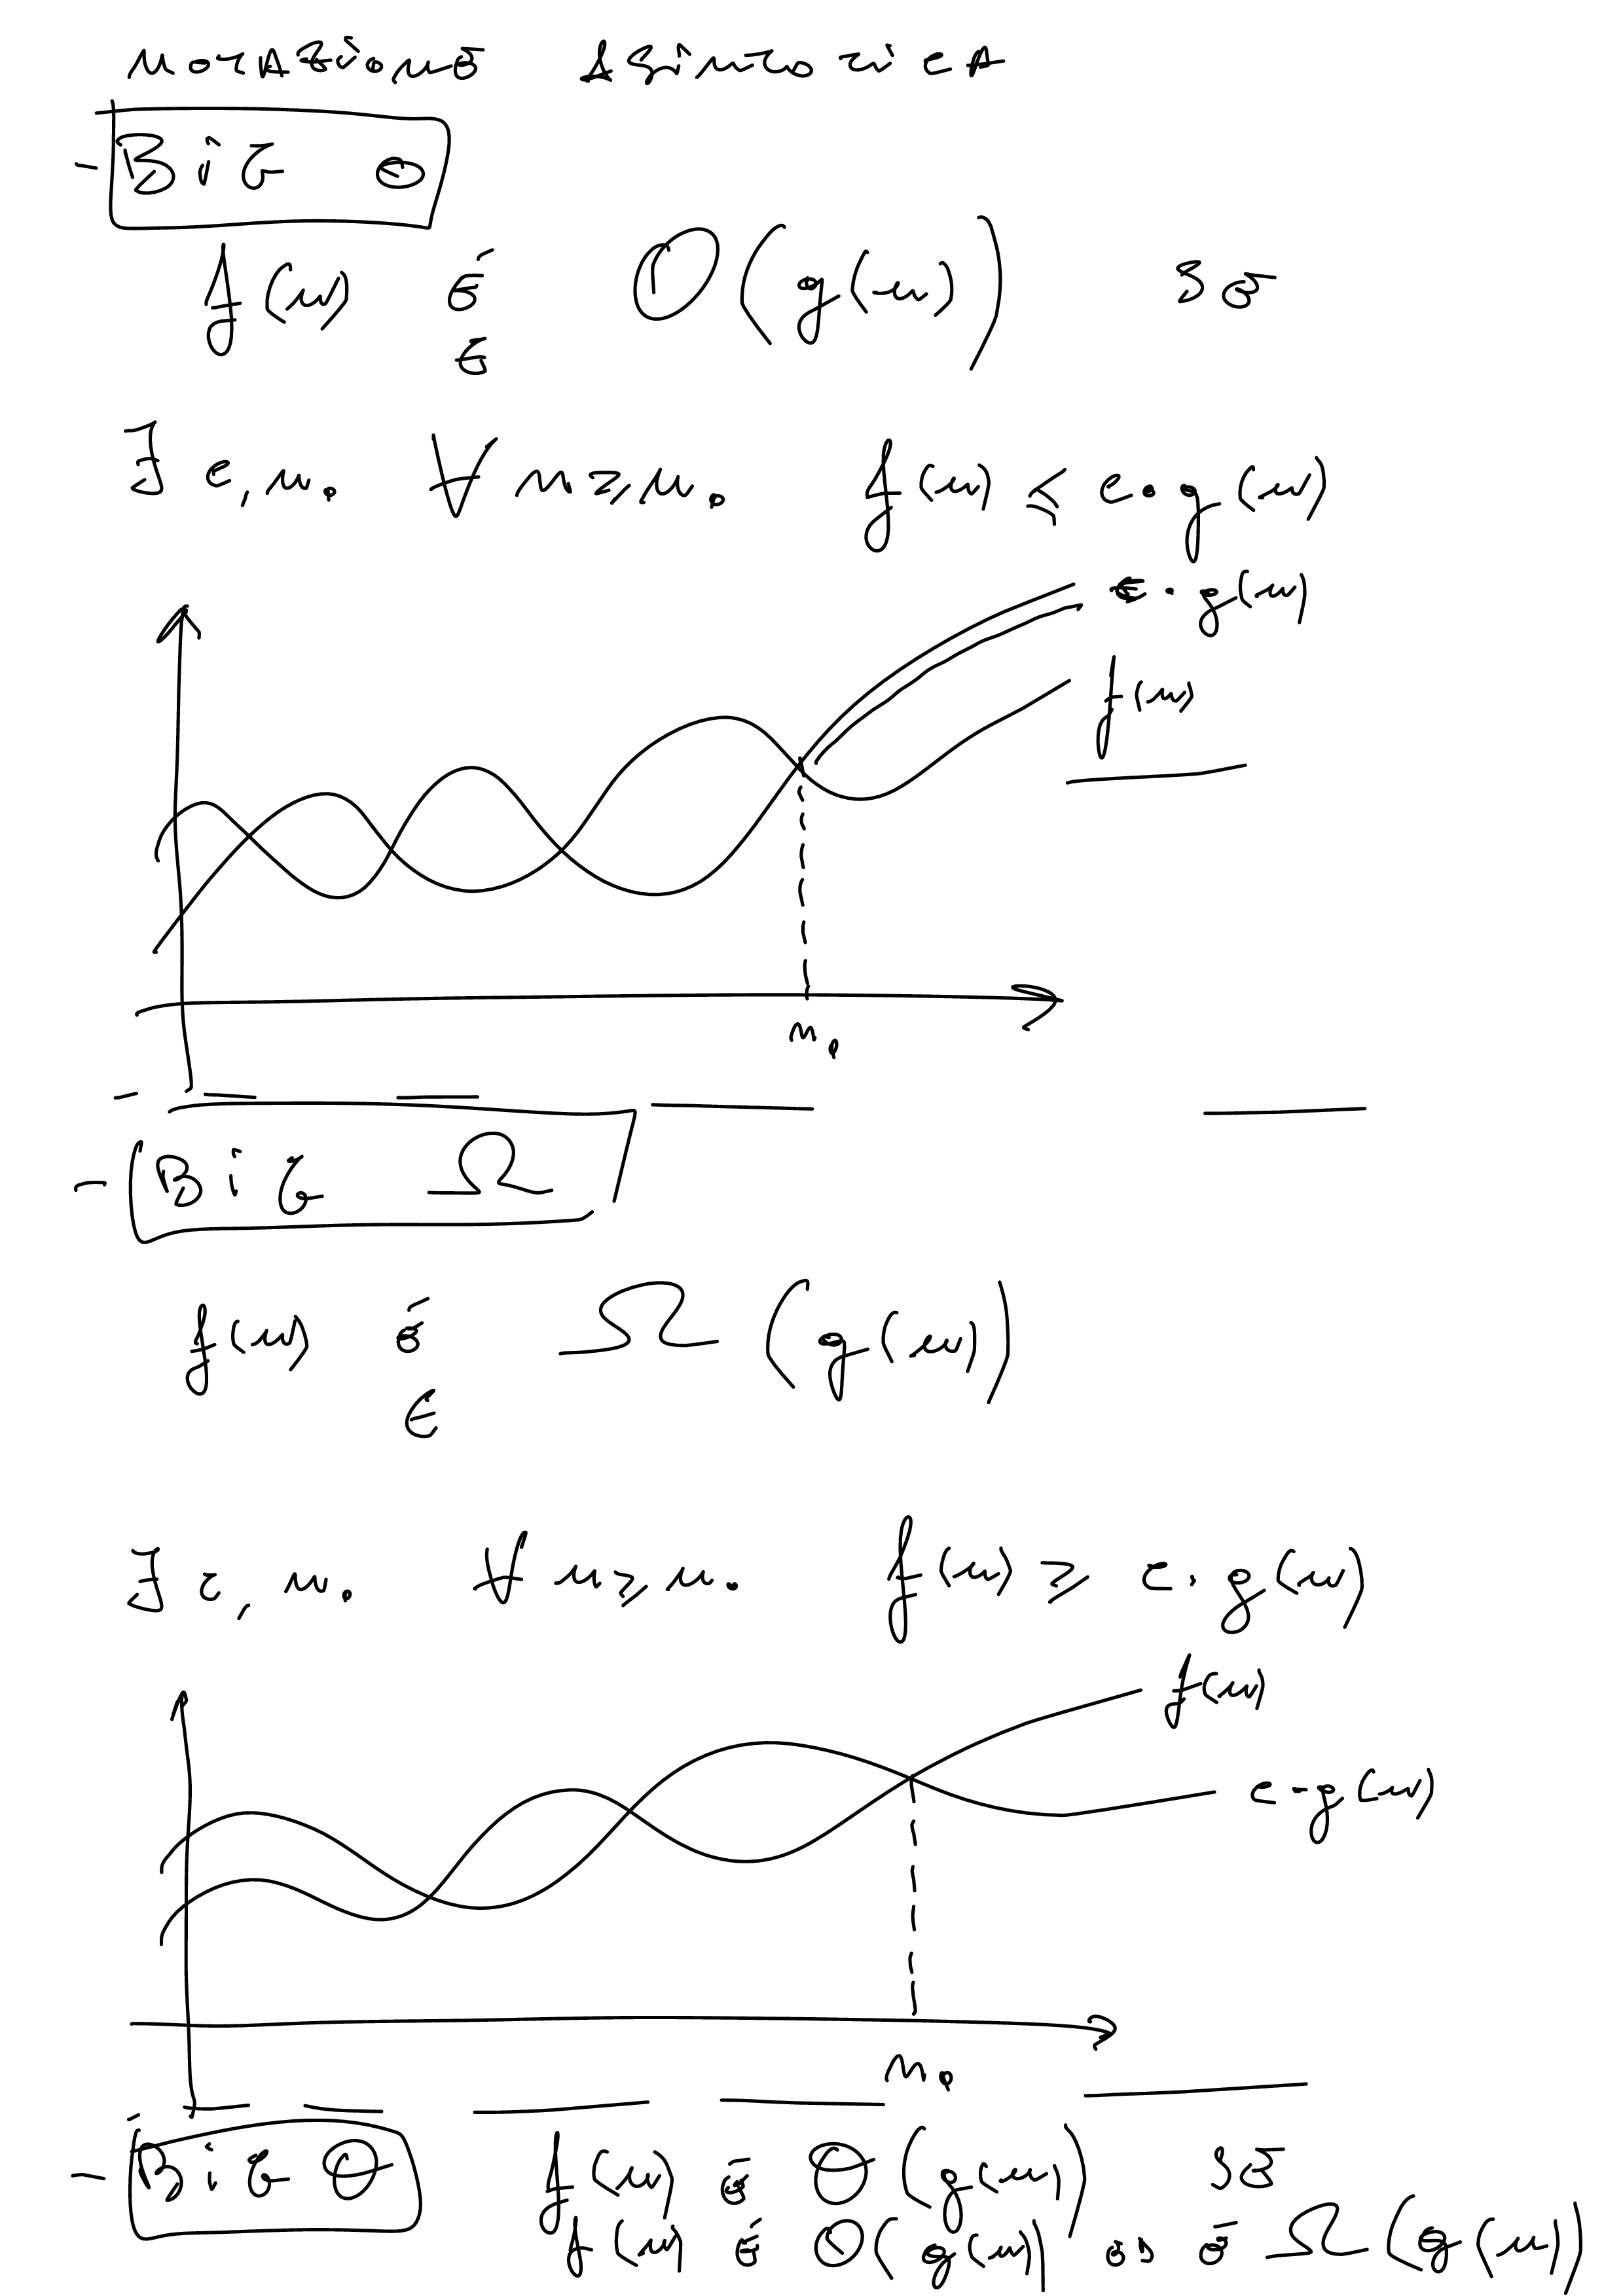 NOTAZIONE ASINTOTICA
- BIG O
f(n) é O(g(n)) SE
∈
∃ c, n₀ ∀ n ≥ n₀ f(n) ≤ c · g(n)
c · g(n)
f(n)
n₀
- BIG Ω
f(n) é Ω (g(n))
∈
∃ c, n₀ ∀ n ≥ n₀ f(n) ≥ c · g(n)
f(n)
c · g(n)
n₀
- BIG Θ f(n) é Θ (g(n)) SE
f(n) é O(g(n)) ED é Ω (g(n))